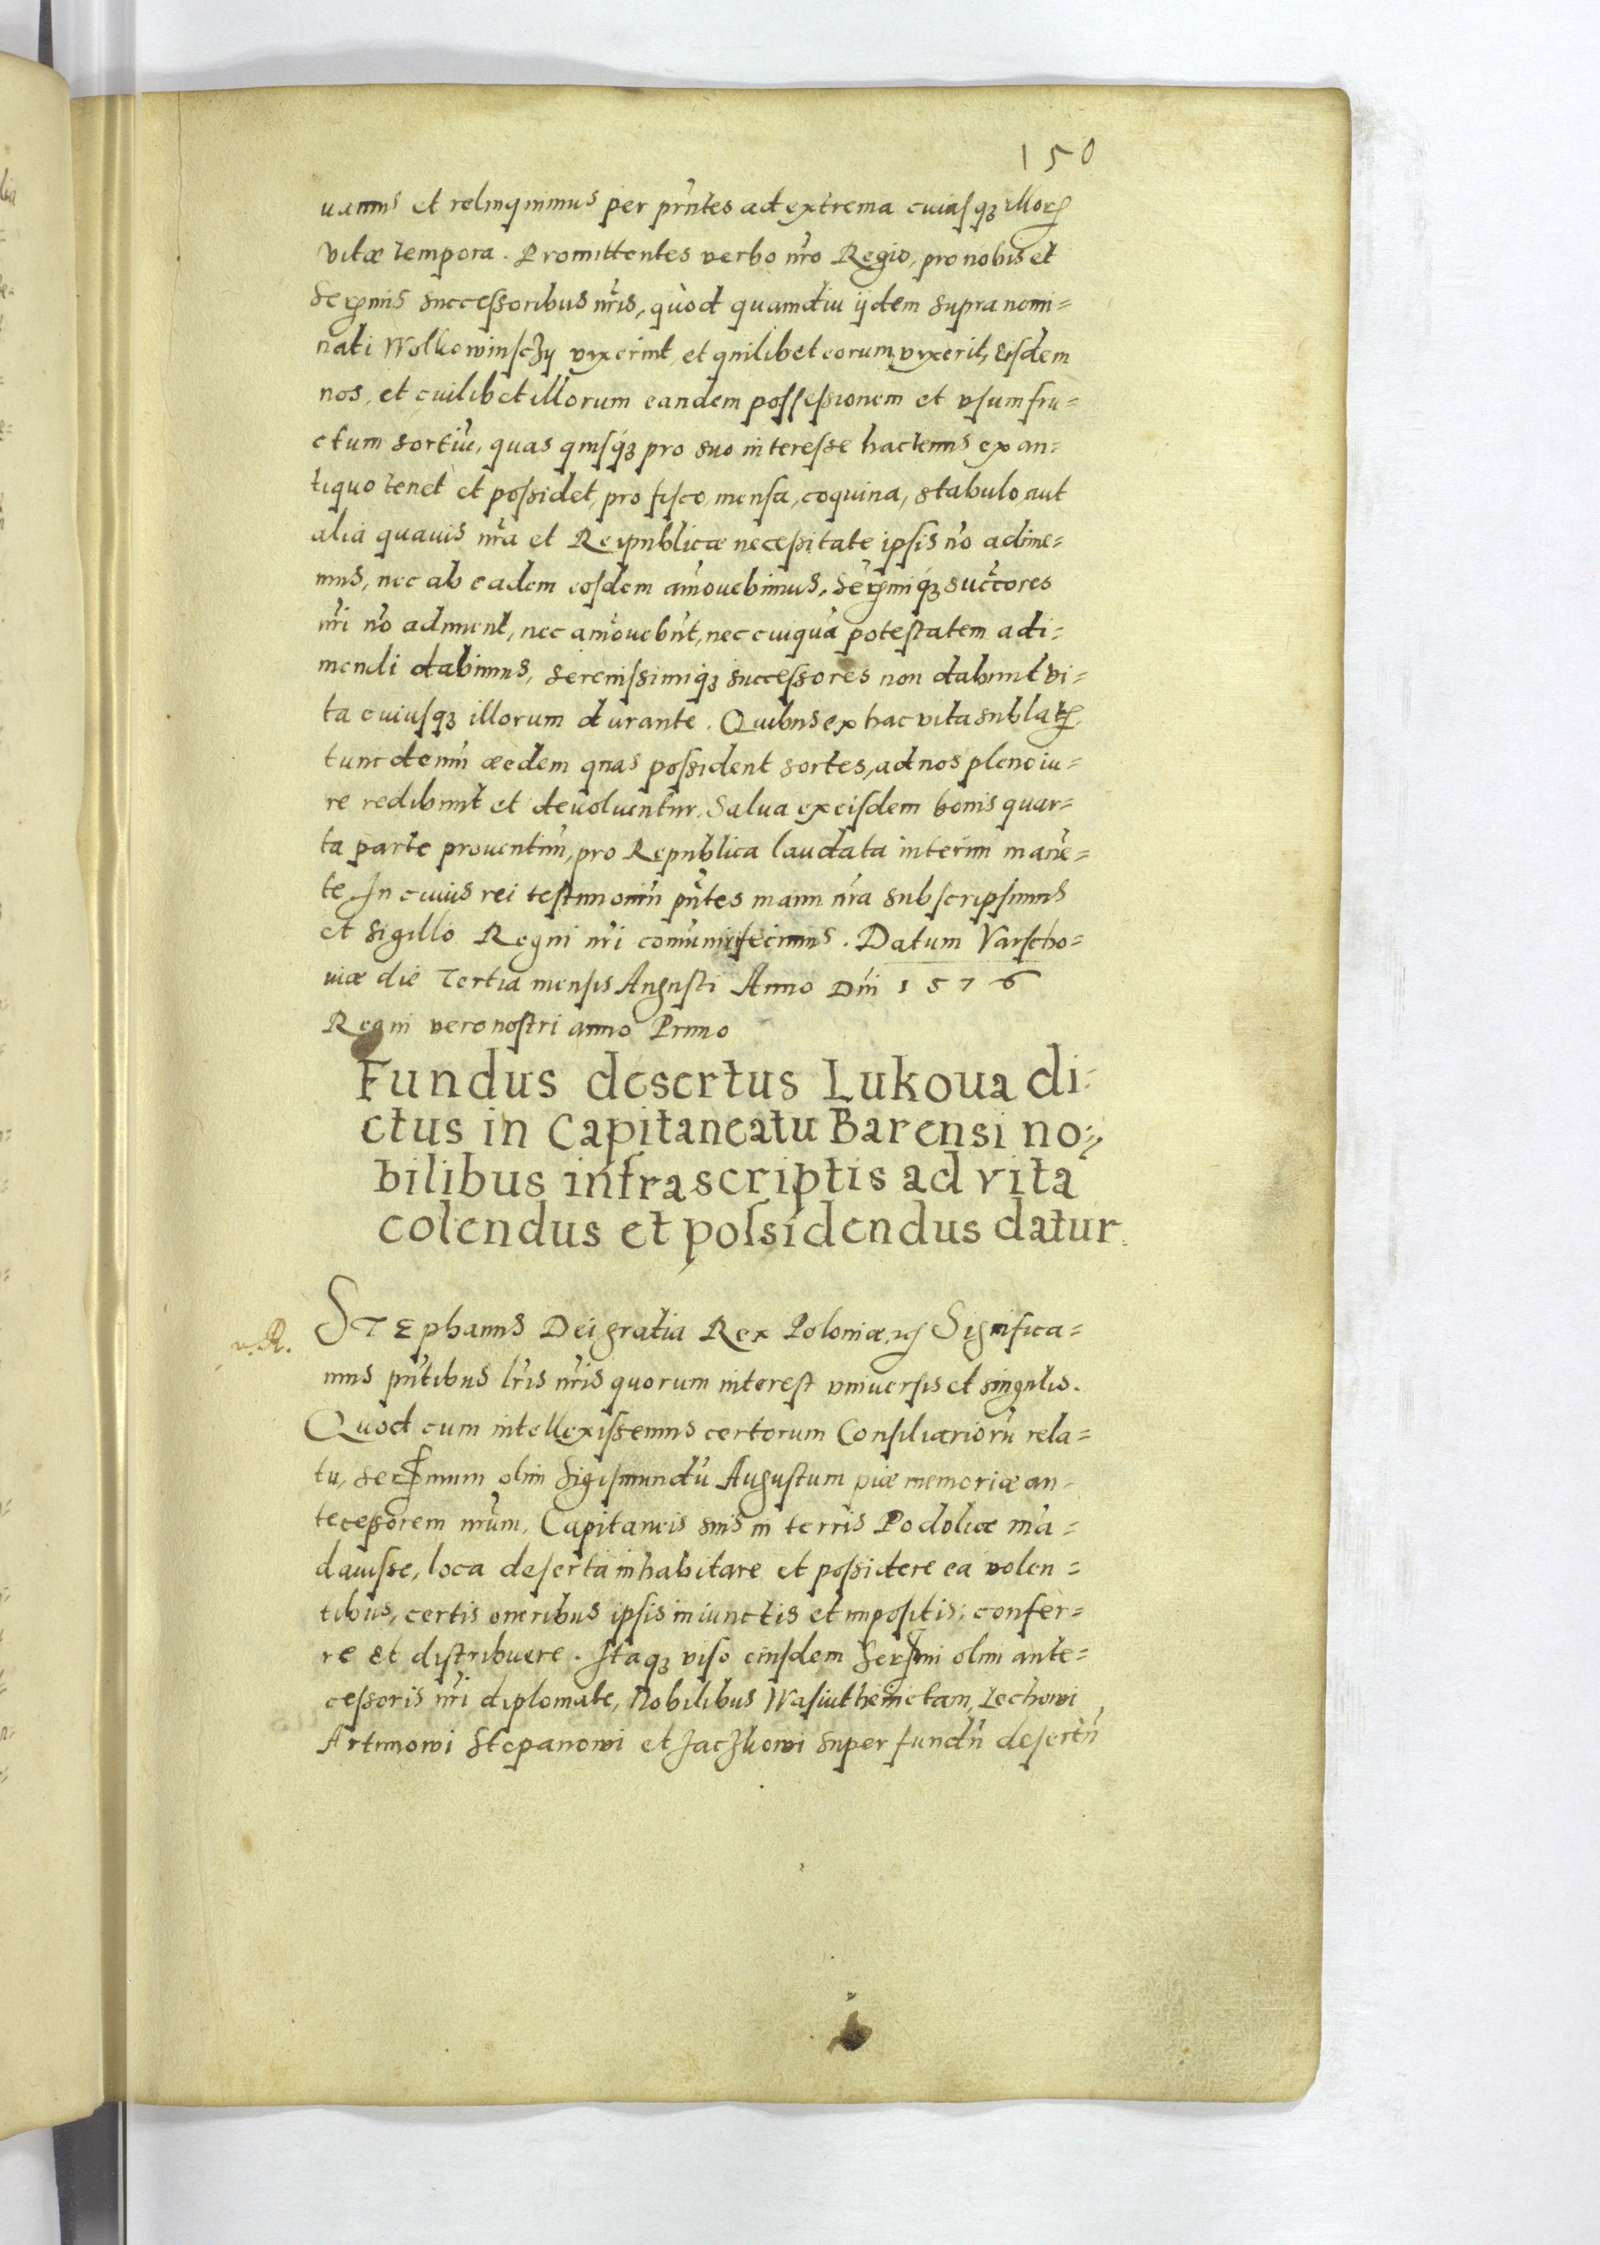 150
uamus et relinquimus per pñtes ad extrema cuiusq₃ illoꝝ
vitæ tempora. Promittentes verbo nr̃o Regio, pro nobis et
Serẽmis successoribus nr̃is, quòd quamdiu ijdem supra nomi=
nati Wolkowinsczy vixerint, et quilibet eorum vixerit, eisdem
nos, et cuilibet illorum eandem possessionem et vsumfru=
ctum sortiũ, quas quisq₃ pro suo interesse hactenus ex an=
tiquo tenet et possidet, pro fisco, mensa, coquina, stabulo, aut
alia quauis nr̃a et Reipublicæ necessitate ipsis nõ adime=
mus, nec ab eadem eosdem amouebimus, Serẽmiq₃ succ̃ores
nr̃i nõ adiment, nec amouebũt, nec cuiquã potestatem adi=
mendi dabimus, serenissimiq₃ successores non dabunt vi=
ta cuiusq₃ illorum durante. Quibus ex hac vita sublatꝭ,
tunc demũ æedem quas possident sortes, ad nos pleno iu=
re redibunt et deuoluentur. Salua ex eisdem bonis quar=
ta parte prouentuũ, pro Republica laudata interim manẽ=
te. In cuius rei testimoniũ pñtes manu nr̃a subscripsimus
et sigillo Regni nr̃i comunirifecimus. Datum Varscho=
uiæ die Tertia mensis Augusti Anno Dñi 1576
Regni vero nostri anno Primo
Fundus desertus Lukoua di=
ctus in Capitaneatu Barensi no=
bilibus infrascriptis ad vitã
colendus et possidendus datur.
v. R.
STEphanus Dei gratia Rex Poloniæ, ꝛc̃ Significa=
mus pñtibus lr̃is nr̃is quorum interest vniuersis et singulis.
Quod cum intellexissemus certorum Consiliariorũ rela=
tu, Serẽmum olim Sigismundũ Augustum piæ memoriæ an=
tecessorem nr̃um, Capitaneis suis in terris Podoliæ mã=
dauisse, loca deserta inhabitare et possidere ea volen=
tibus, certis oneribus ipsis iniunctis et impositis, confer=
re et distribuere. Itaq₃ viso eiusdem Serẽmi olim ante=
cessoris nr̃i diplomate, Nobilibus Lechowi
Artimowi Stepanowi et Jaczkowi super fundũ desertũ